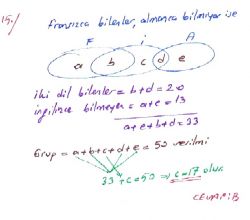 15./ fransızca bilenler, almanca bilmiyor ise
F i A
a b c d e
iki dil bilenler = b+d = 20
ingilizce bilmeyen = a+e = 13
a+e+b+d = 33
Grup = a+b+c+d+e = 50 verilmiş
33 + c = 50 ⇒ c = 17 olur.
CEVAP: B